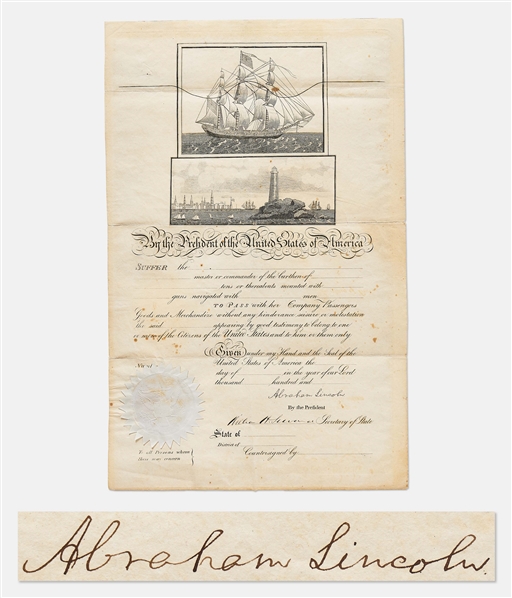 By the President of the United States of America
SUFFER the
master or commander of the burthen of
tons or thereabouts mounted with
guns navigated with men
TO PASS with her Company Passengers
Goods and Merchandize without any hinderance seisure or molestation
the said appearing by good testimony to belong to one
or more of the Citizens of the United States and to him or them only
Given under my Hand and the Seal of the
United States of America the
day of in the year of our Lord
thousand hundred and
Abraham Lincoln
By the President
William H. Seward Secretary of State
State of
District of
Countersigned by
To all Persons whom
these may concern
Abraham Lincoln